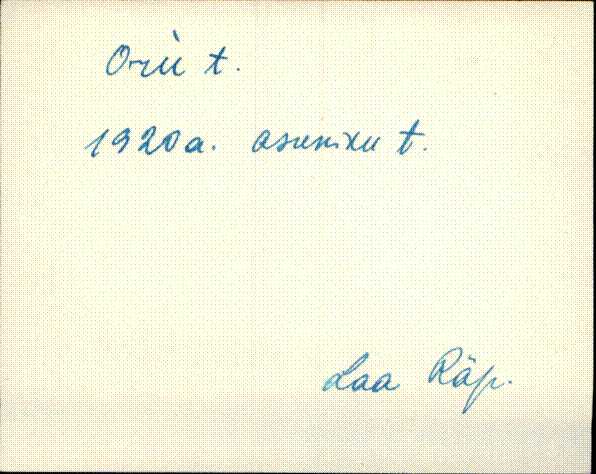 Orìu t.
1920 a. asuniku t.
Laa Räp.